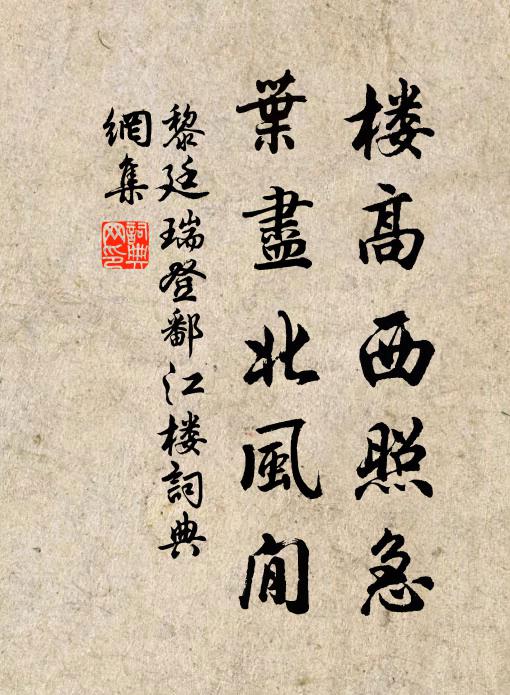 楼高西照急
葉盡北風閒
黎廷瑞登鄱江楼詞典
網集
詞典
网印